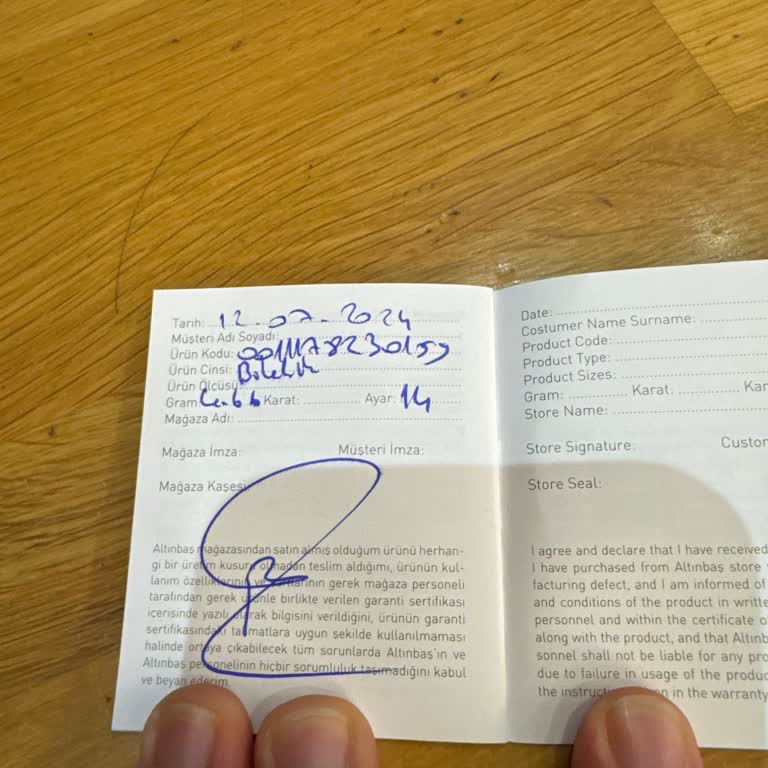 Tarih: 12.07.2024
Müşteri Adı Soyadı:
Ürün Kodu:
Ürün Cinsi: Bileklik
Ürün Ölçüsü:
Gram Karat: Ayar: 14
Mağaza Adı:
Mağaza İmza: Müşteri İmza:
Mağaza Kaşesi
Altınbaş mağazasından satın almış olduğum ürünü herhan-
gi bir üretim kusuru olmadan teslim aldığımı, ürünün kul-
lanım özelliklerinin ve gerek mağaza personeli
tarafından gerek ürünle birlikte verilen garanti sertifikası
içerisinde yazılı olarak bilgisini verildiğini, ürünün garanti
sertifikasındaki talimatlara uygun şekilde kullanılmaması
halinde ortaya çıkabilecek tüm sorunlarda Altınbaş'ın ve
Altınbaş personelinin hiçbir sorumluluk taşımadığını kabul
ve beyan ederim.
Date:
Costumer Name Surname:
Product Code:
Product Type:
Product Sizes:
Gram: Karat: Kar
Store Name:
Store Signature: Custor
Store Seal:
I agree and declare that I have received
I have purchased from Altınbaş store
facturing defect, and I am informed of
and conditions of the product in writte
personnel and within the certificate o
along with the product, and that Altınb
sonnel shall not be liable for any pro
due to failure in usage of the produc
the in the warranty